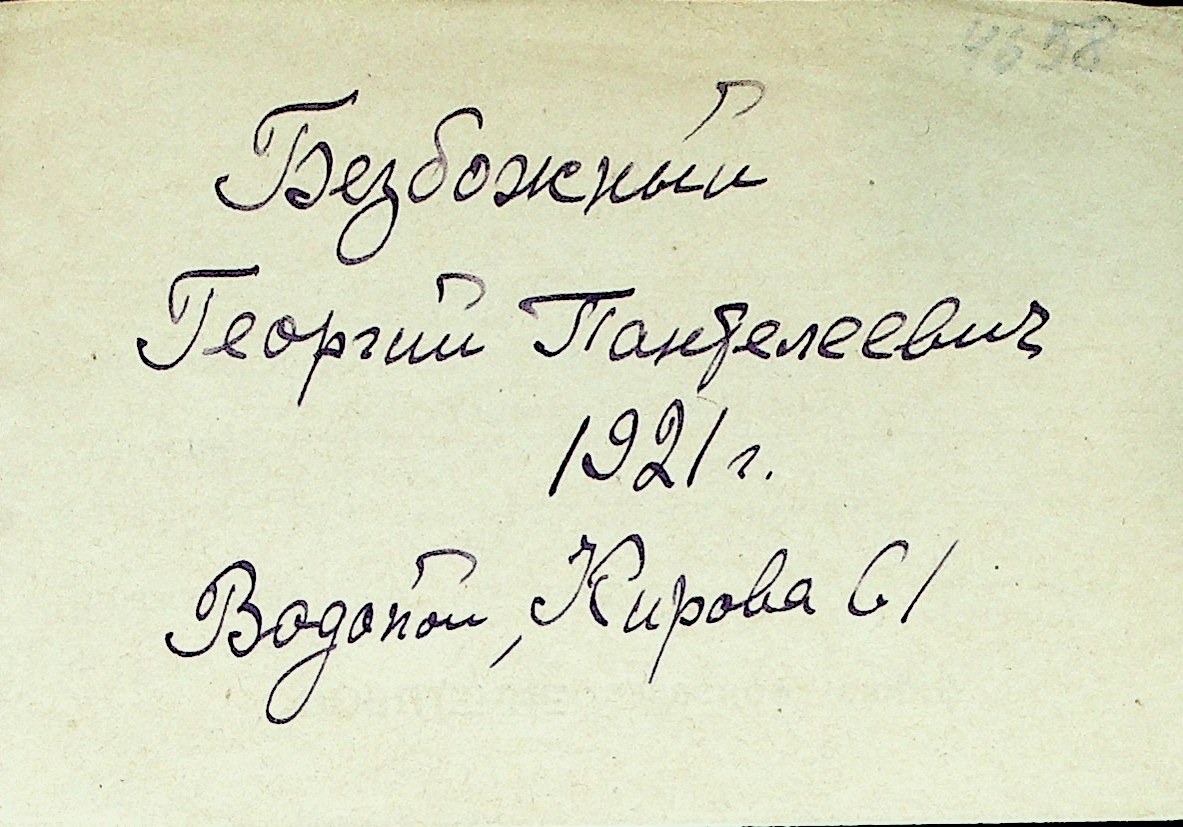 4658
Безбожный
Георгий Пантелеевич
1921 г.
Водопой, Кирова 61